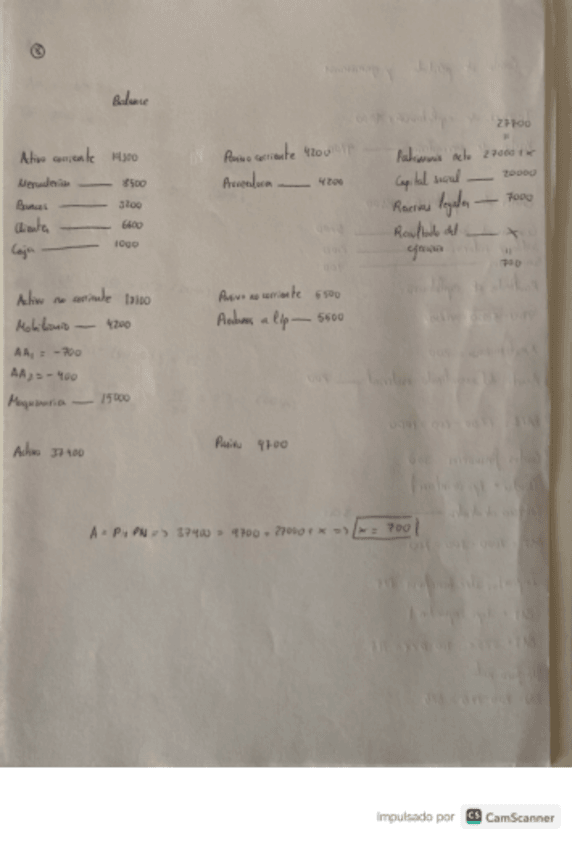 Balance
27700
Activo corriente 19300
Mercaderías 8500
Bancos 3200
Clientes 6600
Caja 1000
Pasivo corriente 4200
Proveedores 4200
Patrimonio neto 27000 + x
Capital social 20000
Reservas legales 7000
Resultado del x
ejercicio
700
Activo no corriente
Mobiliario 4200
AA₁ = -700
AA₂ = -400
Maquinaria 15000
Pasivo no corriente 5500
a l/p
Activo 37400
Pasivo 9700
A = P + PN => 37400 = 9700 + 27000 + x => x = 700
impulsado por CS CamScanner